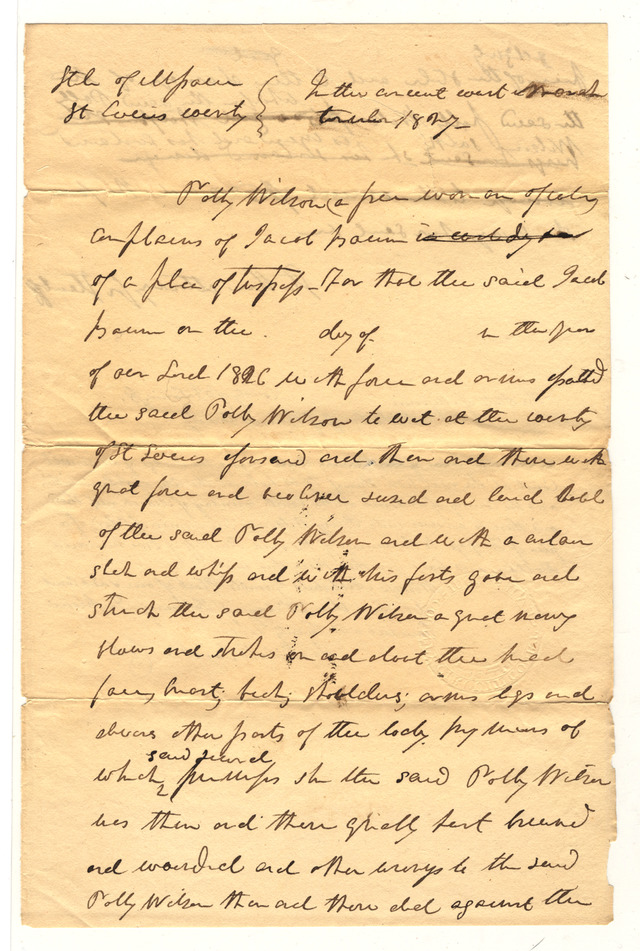 State of Missouri
St Louis County } In the circuit court March
term 1827
Polly Wilson (a free woman of color,
complains of Jacob in custody &c
of a plea of trespass - For that the said Jacob
on the day of in the year
of our Lord 1826 with force and arms assaulted
the said Polly Wilson to wit at the county
of St Louis aforesaid and then and there with
great force and violence seized and laid hold
of the said Polly Wilson and with a certain
stick and whip and with his fists gave and
struck the said Polly Wilson a great many
blows and strokes on and about the head
face, breast, back, shoulders, arms legs and
divers other parts of the body. By means of
said several
which premises she the said Polly Wilson
was then and there greatly hurt bruised
and wounded and other wrongs to the said
Polly Wilson then and there did against the